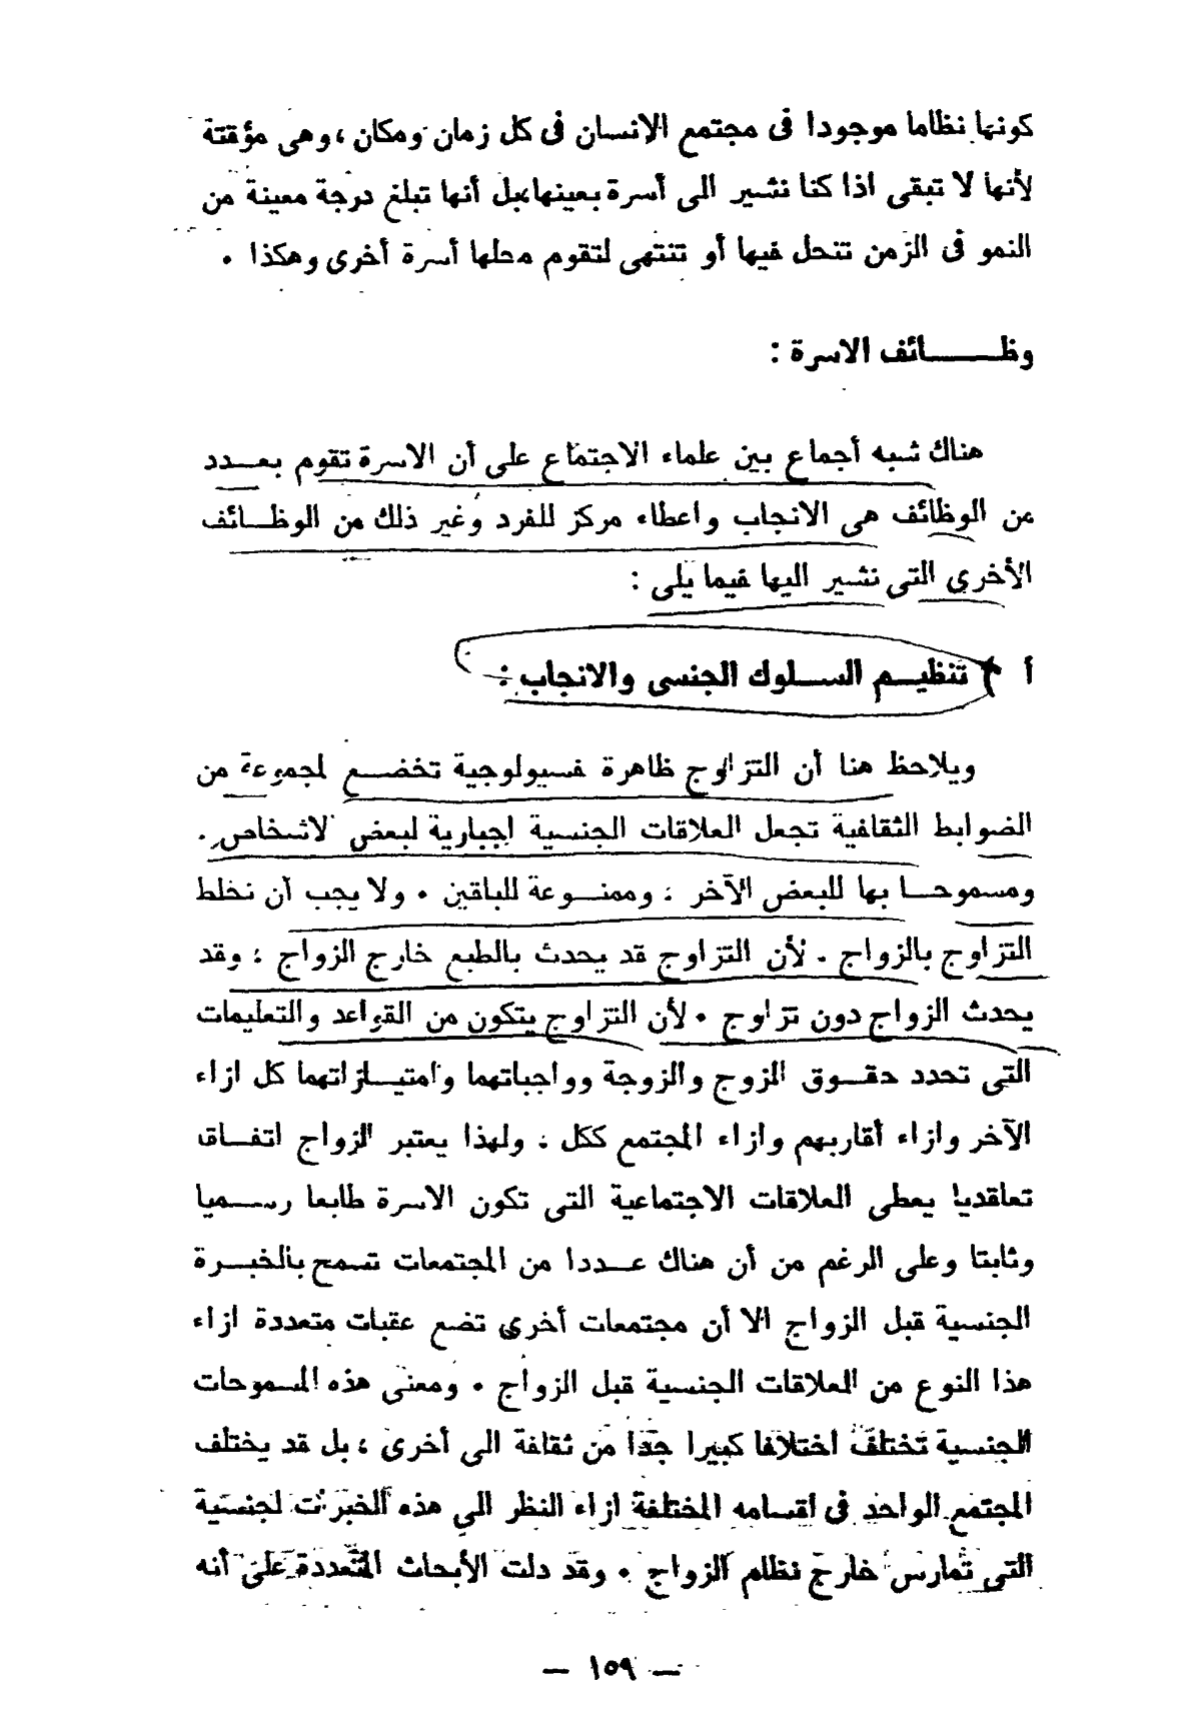 كونها نظاما موجودا فى مجتمع الانسان فى كل زمان ومكان ، وهى مؤقتة
لأنها لا تبقى اذا كنا نشير الى أسرة بعينها، بل أنها تبلغ درجة معينة من
النمو فى الزمن تنحل فيها أو تنتهى لتقوم محلها أسرة أخرى وهكذا •
وظـــــائف الاسرة :
هناك شبه أجماع بين علماء الاجتماع على أن الاسرة تقوم بعـدد
من الوظائف هى الانجاب واعطاء مركز للفرد وغير ذلك من الوظـائف
الأخرى التى نشير اليها فيما يلى :
أ ) تنظيـم السـلوك الجنسى والانجاب :
ويلاحظ هنا أن التزاوج ظاهرة فسيولوجية تخضـع لمجموعة من
الضوابط الثقافية تجعل العلاقات الجنسية اجبارية لبعض الاشخاص .
ومسموحـا بها للبعض الآخر ، وممنـوعة للباقين • ولا يجب أن نخلط
التزاوج بالزواج . لأن التزاوج قد يحدث بالطبع خارج الزواج ، وقد
يحدث الزواج دون تزاوج • لأن التزاوج يتكون من القواعد والتعليمات
التى تحدد حقـوق الزوج والزوجة وواجباتهما وامتيـازاتهما كل ازاء
الآخر وازاء أقاربهم وازاء المجتمع ككل . ولهذا يعتبر الزواج اتفـاق
تعاقديا يعطى العلاقات الاجتماعية التى تكون الاسرة طابعا رسـميا
وثابتا وعلى الرغم من أن هناك عـددا من المجتمعات تسمح بالخبـرة
الجنسية قبل الزواج الا أن مجتمعات أخرى تضع عقبات متعددة ازاء
هذا النوع من العلاقات الجنسية قبل الزواج • ومعنى هذه المسموحات
الجنسية تختلف اختلافا كبيرا جدا من ثقافة الى أخرى ، بل قد يختلف
المجتمع الواحد فى أقسامه المختلفة ازاء النظر الى هذه الخبرات لجنسية
التى تمارس خارج نظام الزواج • وقد دلت الأبحاث المتعددة على أنه
— ١٥٩ —